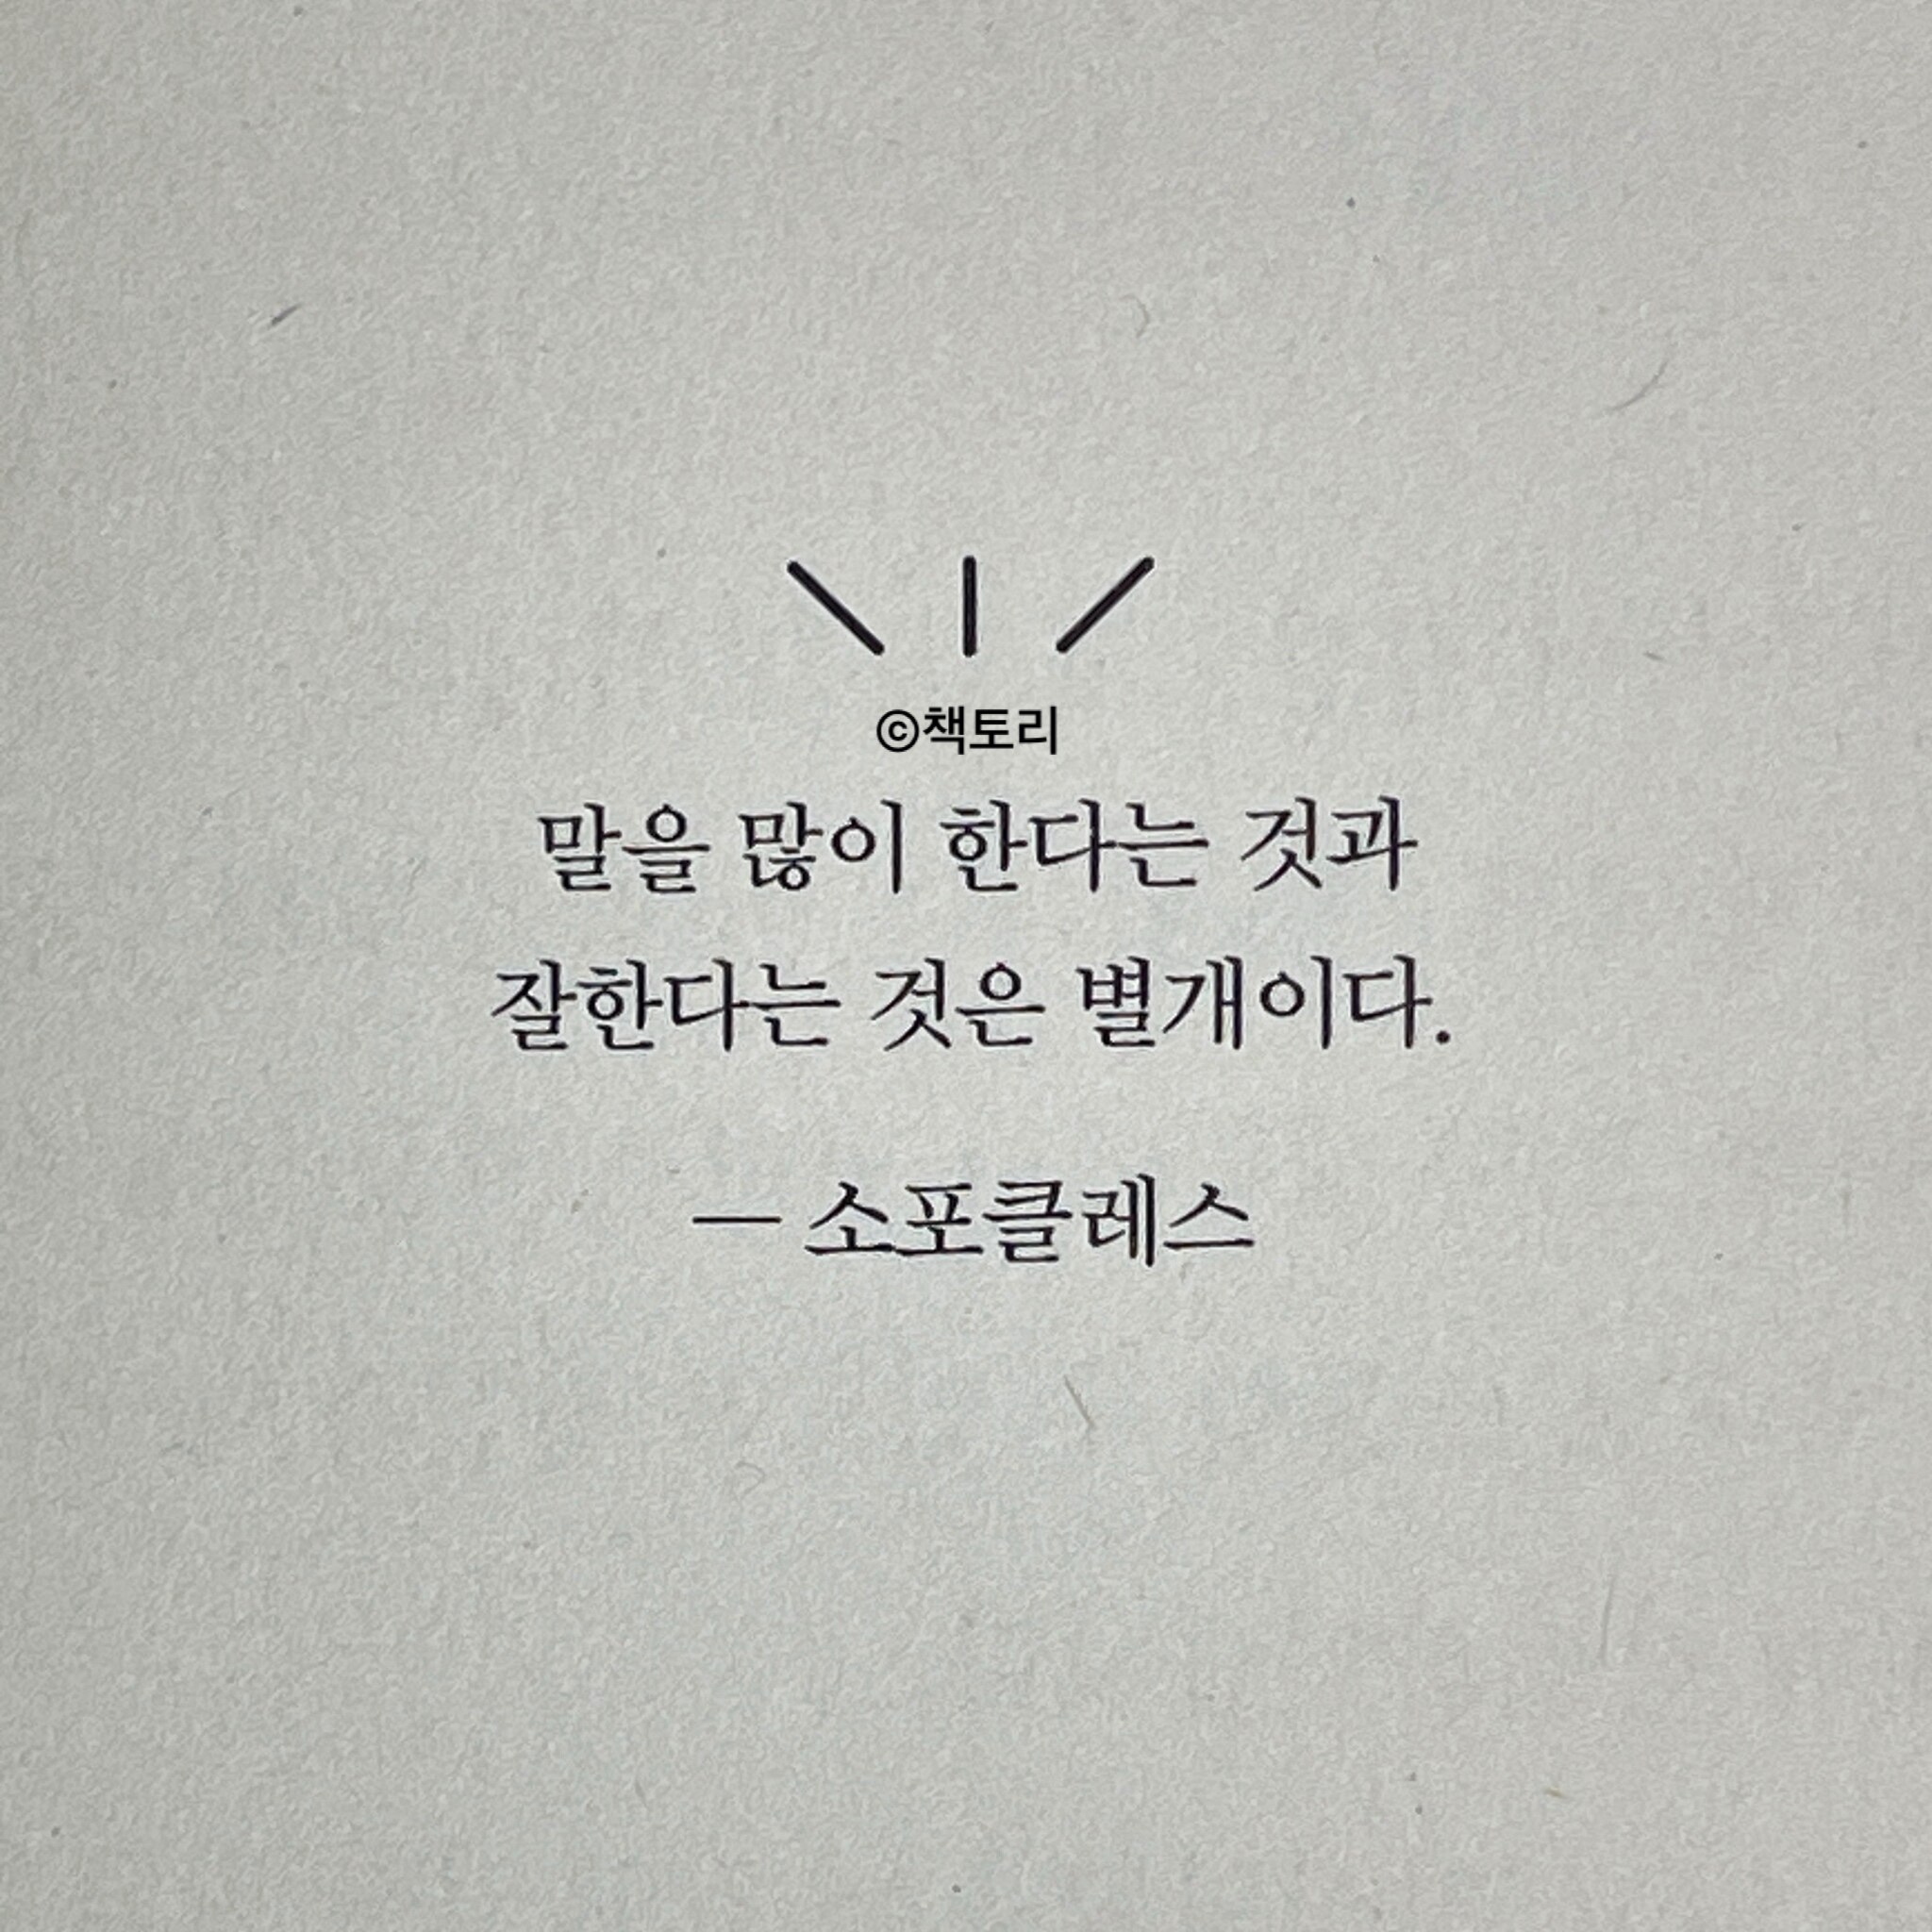 ©책토리
말을 많이 한다는 것과
잘한다는 것은 별개이다.
— 소포클레스